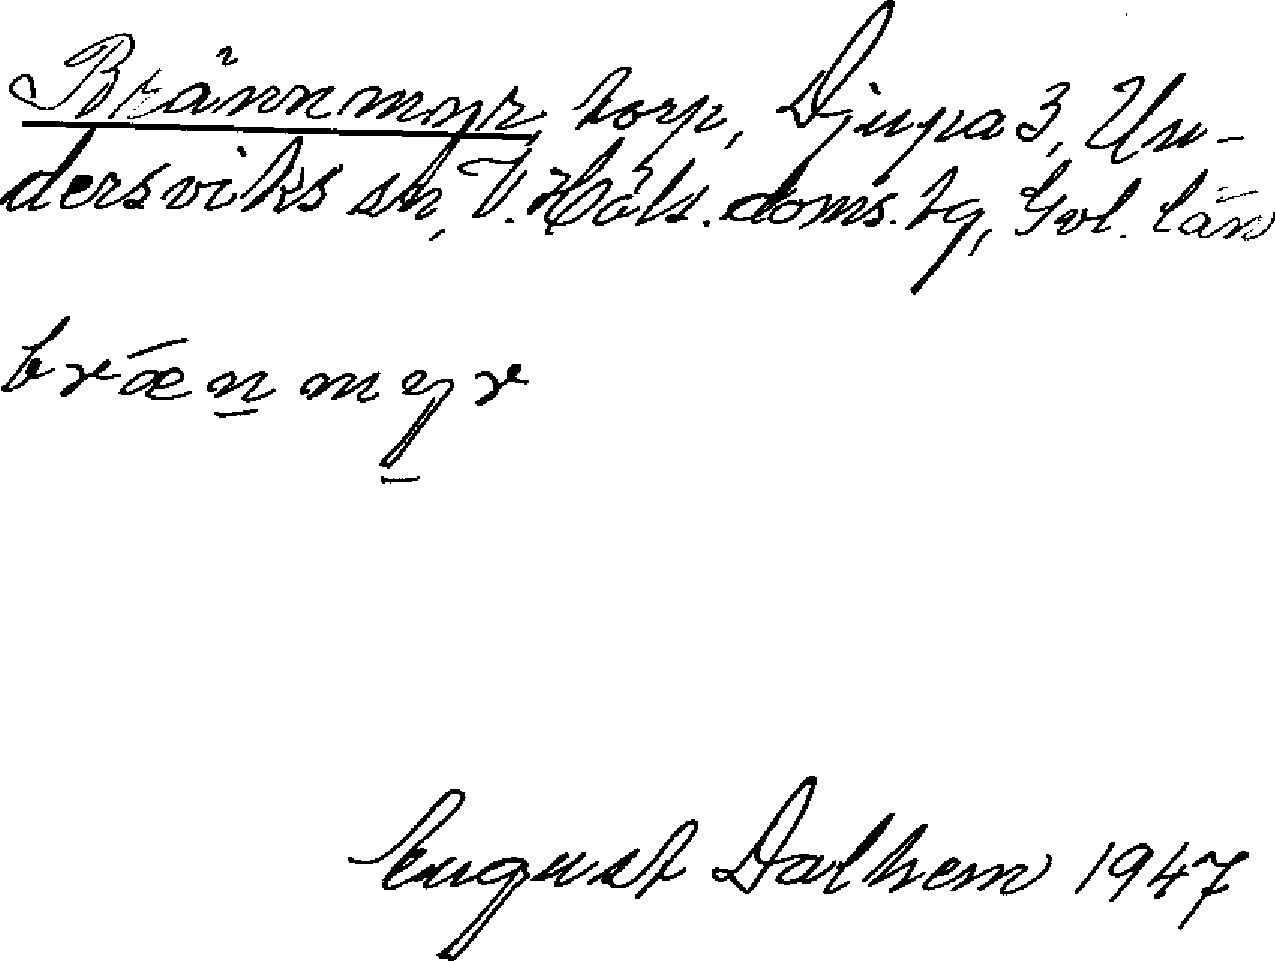 Brännmyr, torp, Djupa 3, Un-
dersviks sn, V. Häls. doms. tg, Gvl. län
brænmyr
August Dalhem 1947